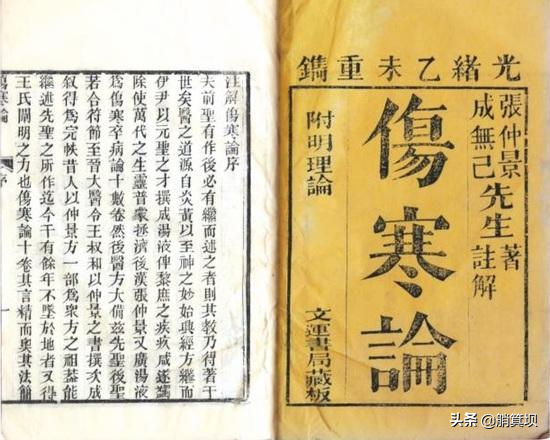 光緒乙未重鐫
張仲景 先生著
成無己 註解
傷寒論
附明理論
文運書局藏板
注解傷寒論序
夫前聖有作後必有繼而述之者則其教乃得著于
世矣醫之道源自炎黃以至神之妙始興經方繼而
伊尹以元聖之才撰成湯液俾黎庶之疾疚咸遂蠲
除使萬代之生靈普蒙拯濟後漢張仲景又廣湯液
爲傷寒卒病論十數卷然後醫方大備茲先聖後聖
若合符節至晉太醫令王叔和以仲景之書撰次成
叙得爲完帙昔人以仲景方一部爲衆方之祖葢能
繼述先聖之所作迄今千有餘年不墜於地者又得
王氏闡明之力也傷寒論十卷其言精而奧其法簡
傷寒論
序
一
头条 @腁箕坝